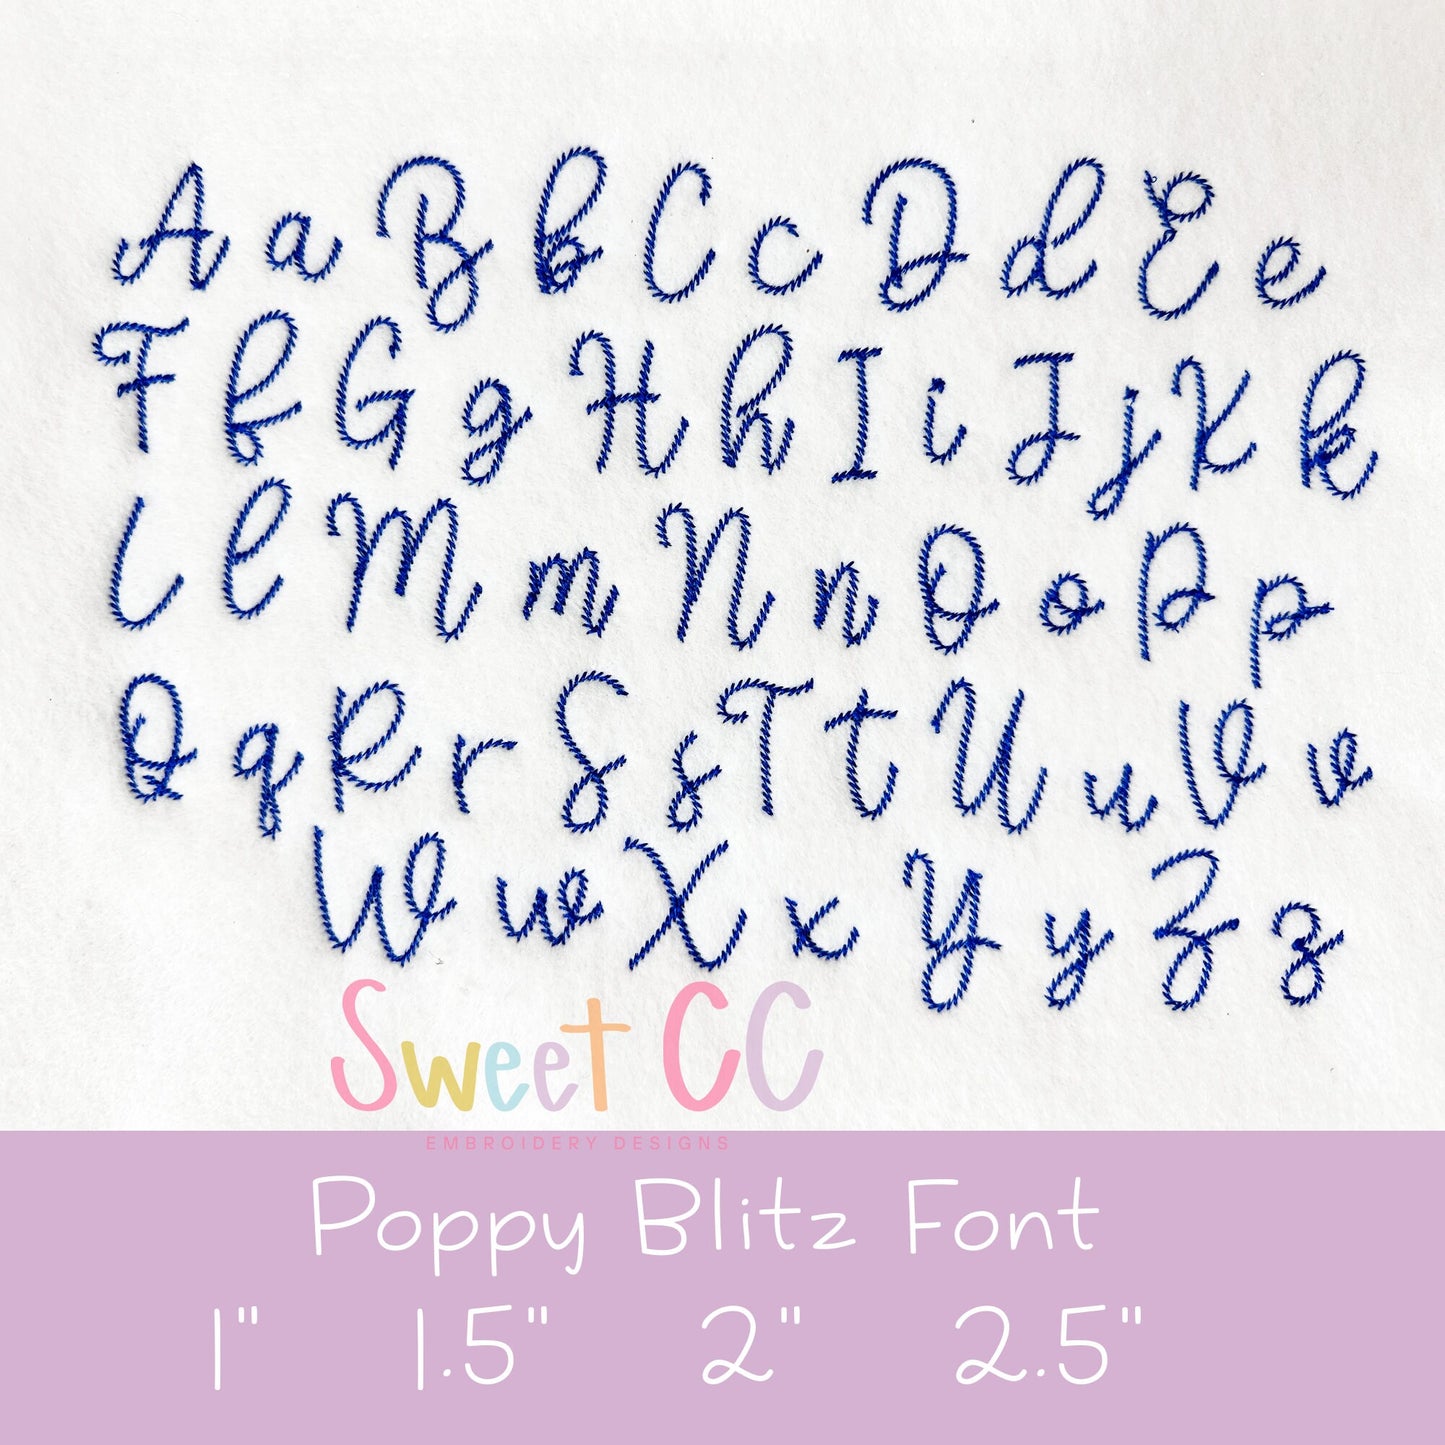 A a B b C c D d E e
F f G g H h I i J j K k
L l M m N n O o P p
Q q R r S s T t U u V v
W w X x Y y Z z
Sweet CC
EMBROIDERY DESIGNS
Poppy Blitz Font
1" 1.5" 2" 2.5"